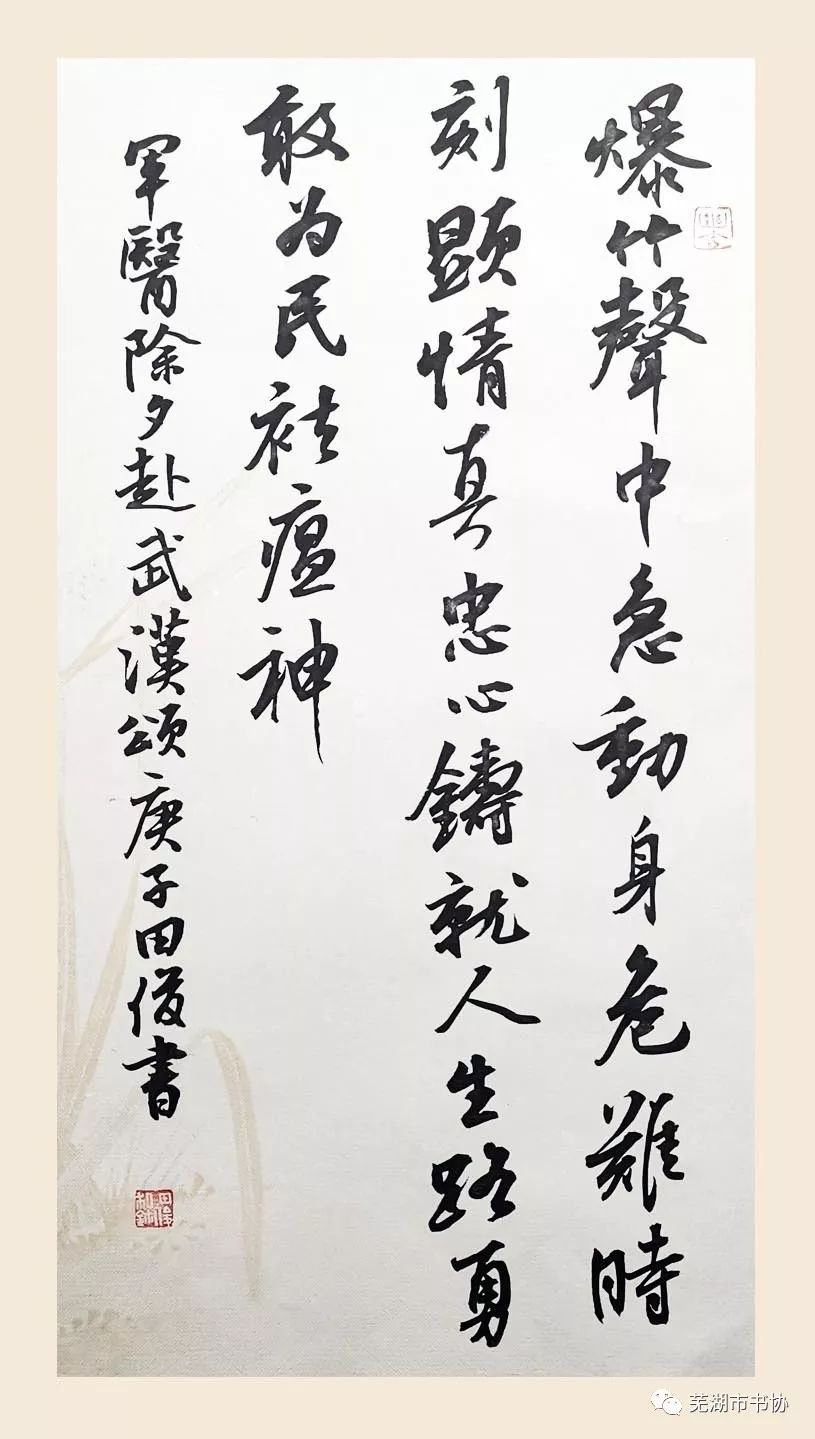 爆竹聲中急動身危難時
刻顕情真忠心鑄就人生路勇
敢为民祛瘟神
軍醫除夕赴武漢頌庚子田俊書
芜湖市书协